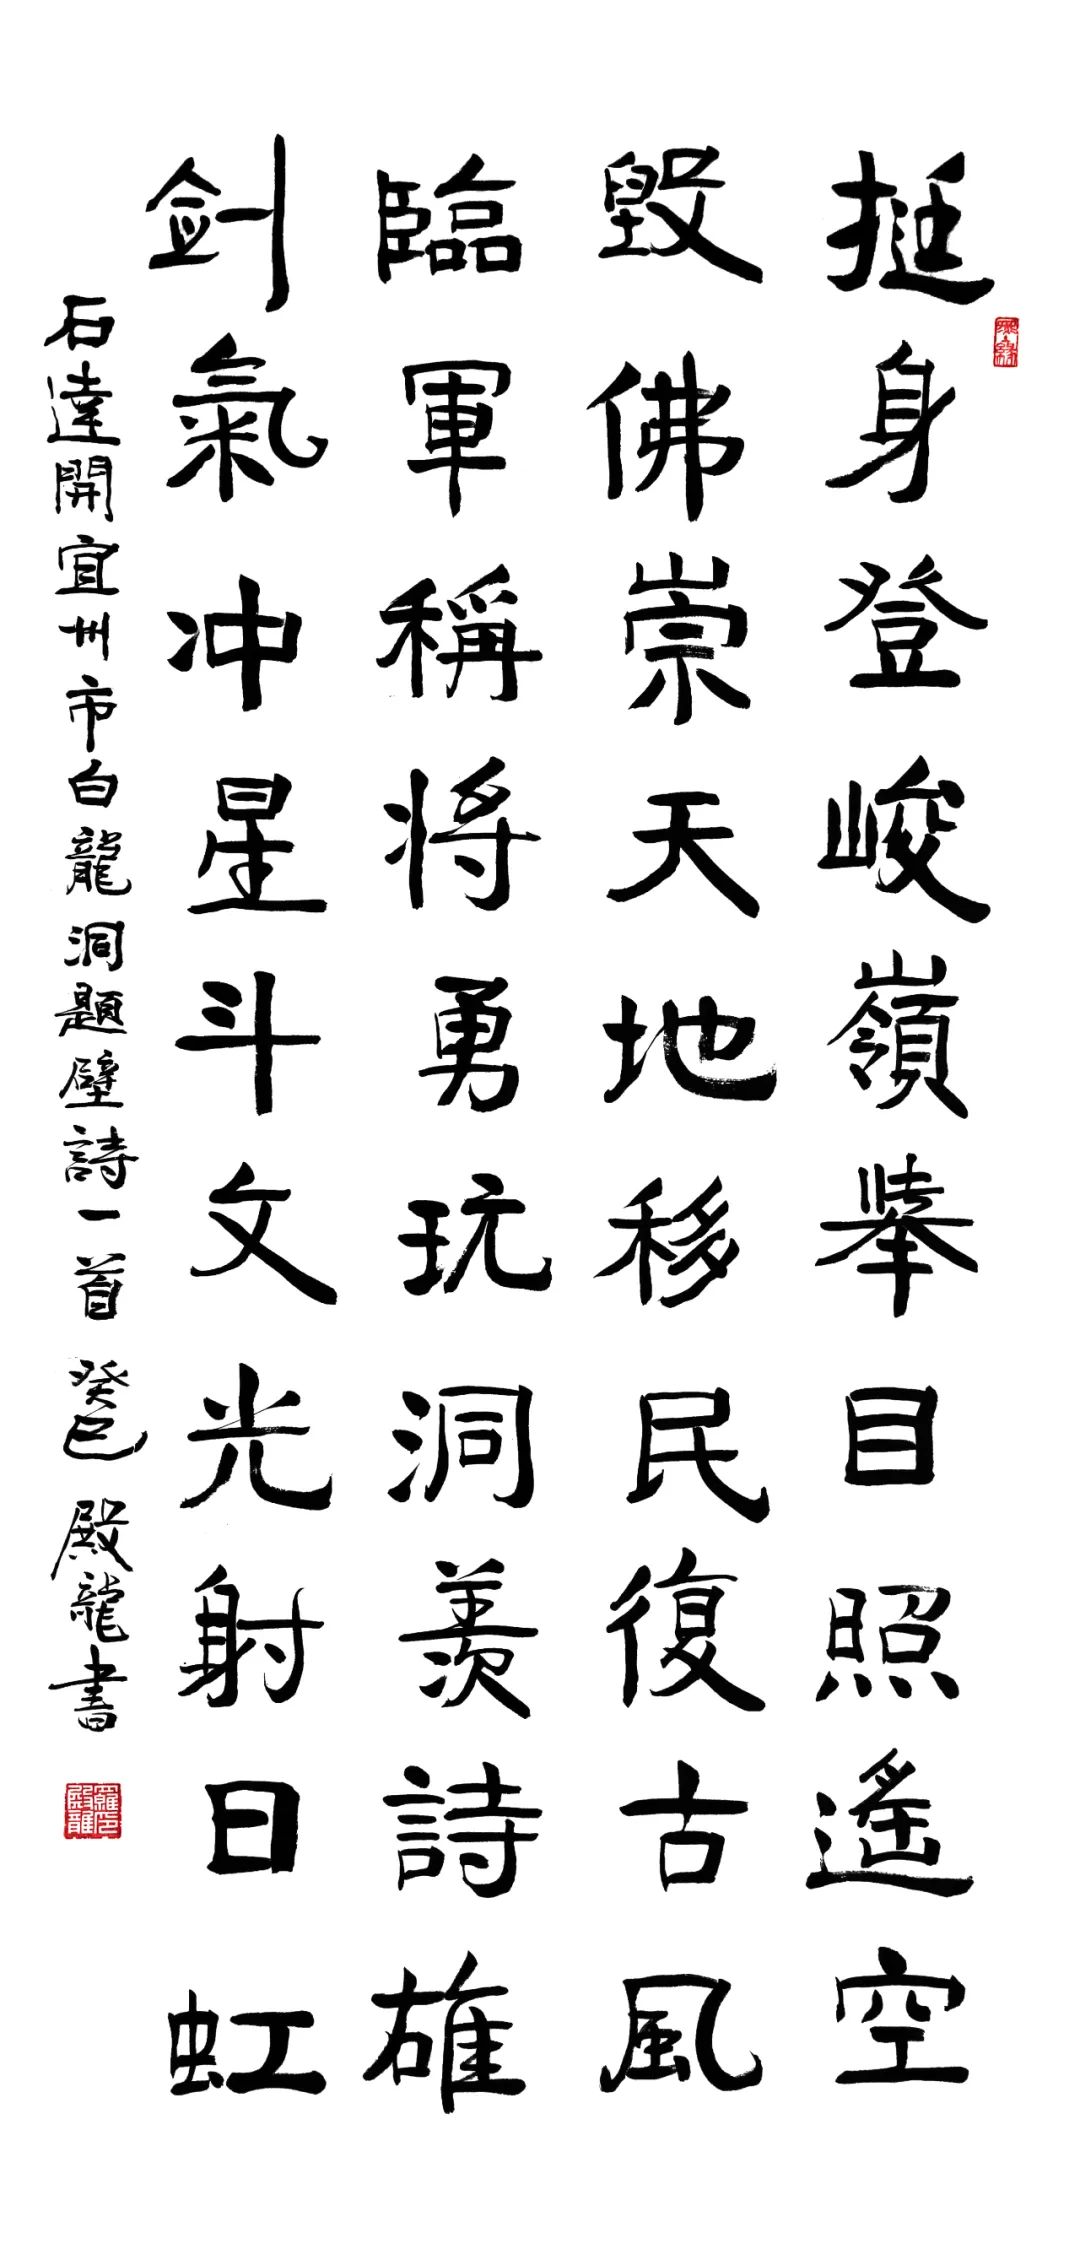 挺身登峻嶺舉目照遙空
毀佛崇天地移民復古風
臨軍稱將勇玩洞羨詩雄
劍氣冲星斗文光射日虹
石達開宜州市白龍洞題壁詩一首 癸巳 殿龍書
羅殿龍印